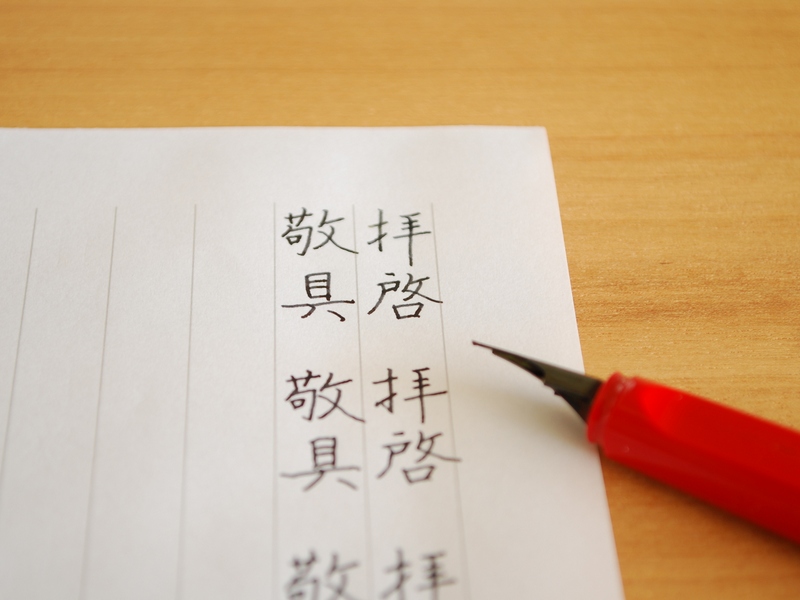 拝啓 拝啓 拝
敬具 敬具 敬